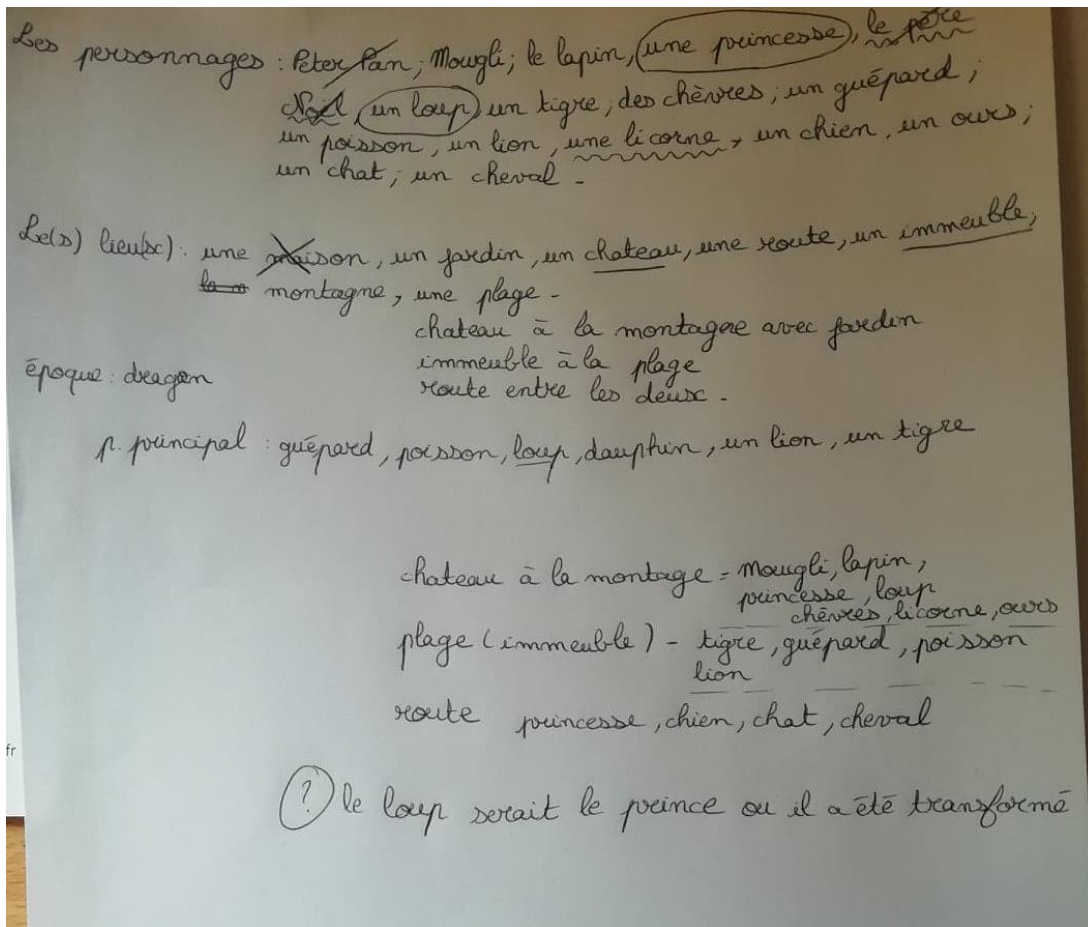 Les personnages : Peter Pan ; Mougli ; le lapin, une princesse, le père
Noël, un loup, un tigre ; des chèvres ; un guépard ;
un poisson, un lion, une licorne, un chien, un ours ;
un chat ; un cheval -
Le(s) lieu(x) : une maison, un jardin, un chateau, une route, un immeuble,
la m montagne, une plage -
chateau à la montagne avec jardin
immeuble à la plage
époque : dragon
route entre les deux -
p. principal : guépard, poisson, loup, dauphin, un lion, un tigre
chateau à la montage = Mougli, lapin,
princesse, loup
chèvres, licorne, ours
plage (immeuble) - tigre, guépard, poisson
lion
route princesse, chien, chat, cheval
fr
? le loup serait le prince ou il a été transformé